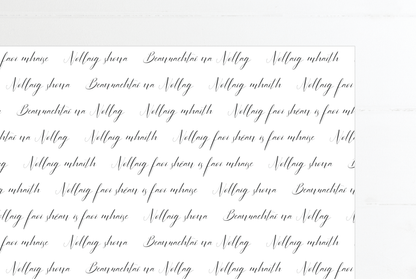 faoi mhaise Nollaig shona Beannachtaí na Nollag Nollaig mhaith
Nollaig shona Beannachtaí na Nollag Nollaig mhaith Nollaig faoi
Beannachtaí na Nollag Nollaig mhaith Nollaig faoi shéan is faoi m
htaí na Nollag Nollaig mhaith Nollaig faoi shéan is faoi mhaise Noll
g Nollaig mhaith Nollaig faoi shéan is faoi mhaise Nollaig shona B
g mhaith Nollaig faoi shéan is faoi mhaise Nollaig shona Beannachtaí n
ollaig faoi shéan is faoi mhaise Nollaig shona Beannachtaí na Nollag
faoi mhaise Nollaig shona Beannachtaí na Nollag Nollaig mhaith
Nollaig shona Beannachtaí na Nollag Nollaig mhaith Nollaig faoi